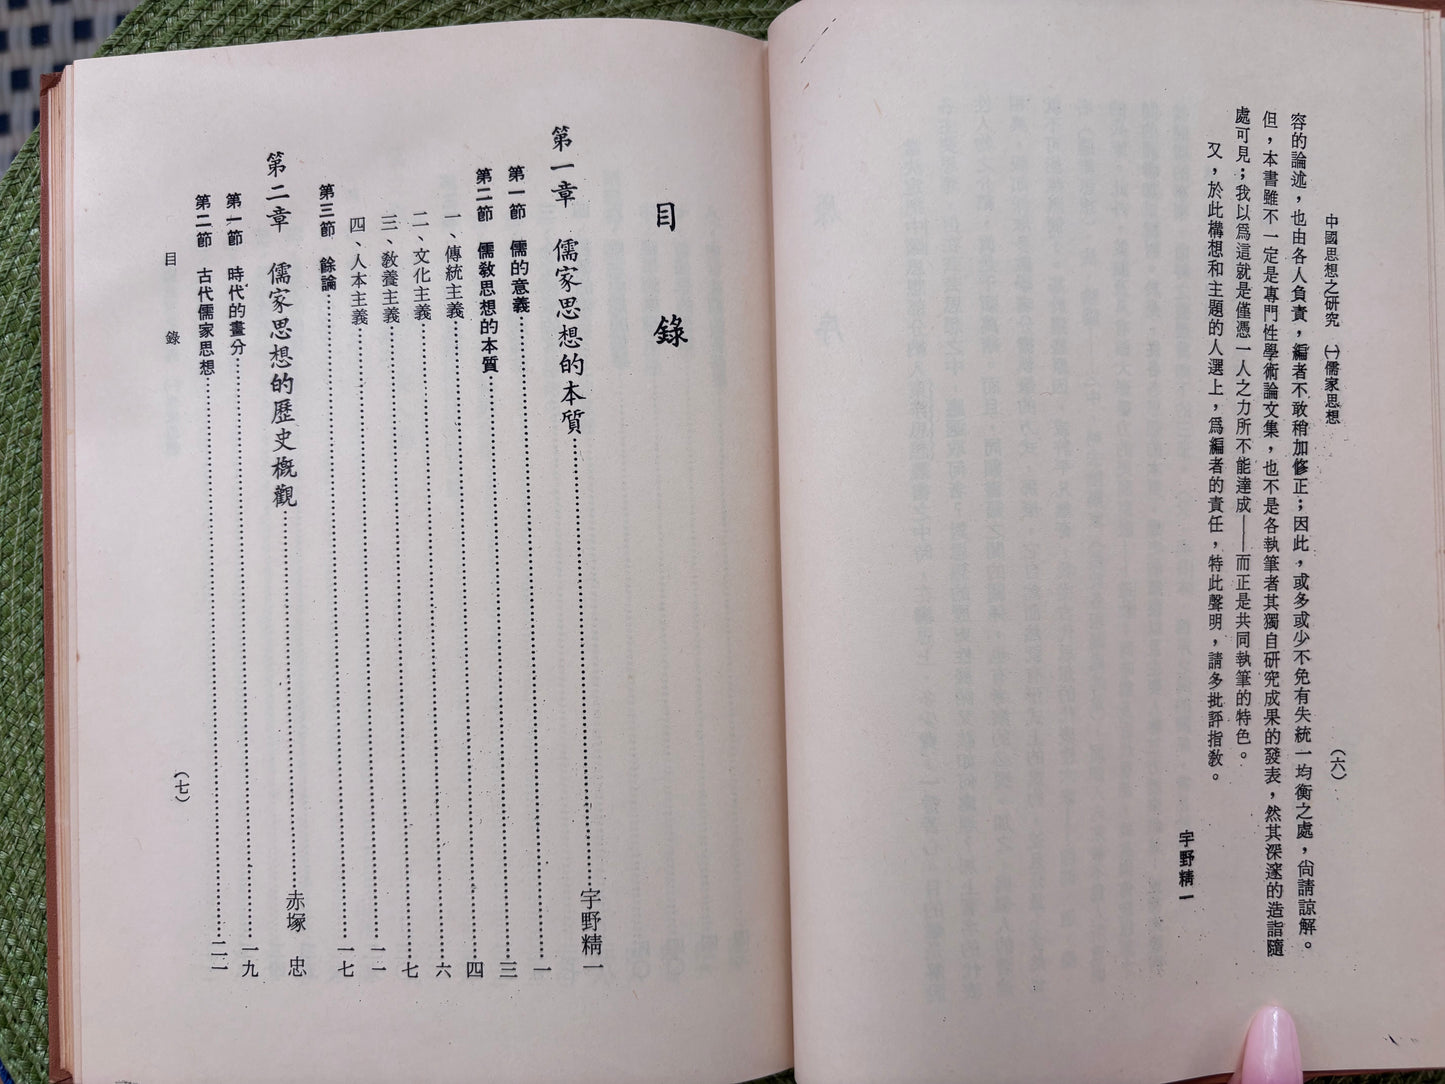 中國思想之研究 ㈠儒家思想
(六)
容的論述，也由各人負責，編者不敢稍加修正；因此，或多或少不免有失統一均衡之處，尙請諒解。
但，本書雖不一定是專門性學術論文集，也不是各執筆者其獨自研究成果的發表，然其深邃的造詣隨
處可見；我以爲這就是僅憑一人之力所不能達成——而正是共同執筆的特色。
又，於此構想和主題的人選上，爲編者的責任，特此聲明，請多批評指敎。
宇野精一
目 錄
第一章 儒家思想的本質……宇野精一
第一節 儒的意義……一
第二節 儒敎思想的本質……三
一、傳統主義……四
二、文化主義……六
三、敎養主義……七
四、人本主義……一一
第三節 餘論……一七
第二章 儒家思想的歷史槪觀……赤塚 忠
第一節 時代的畫分……一九
第二節 古代儒家思想……二一
目 錄
(七)